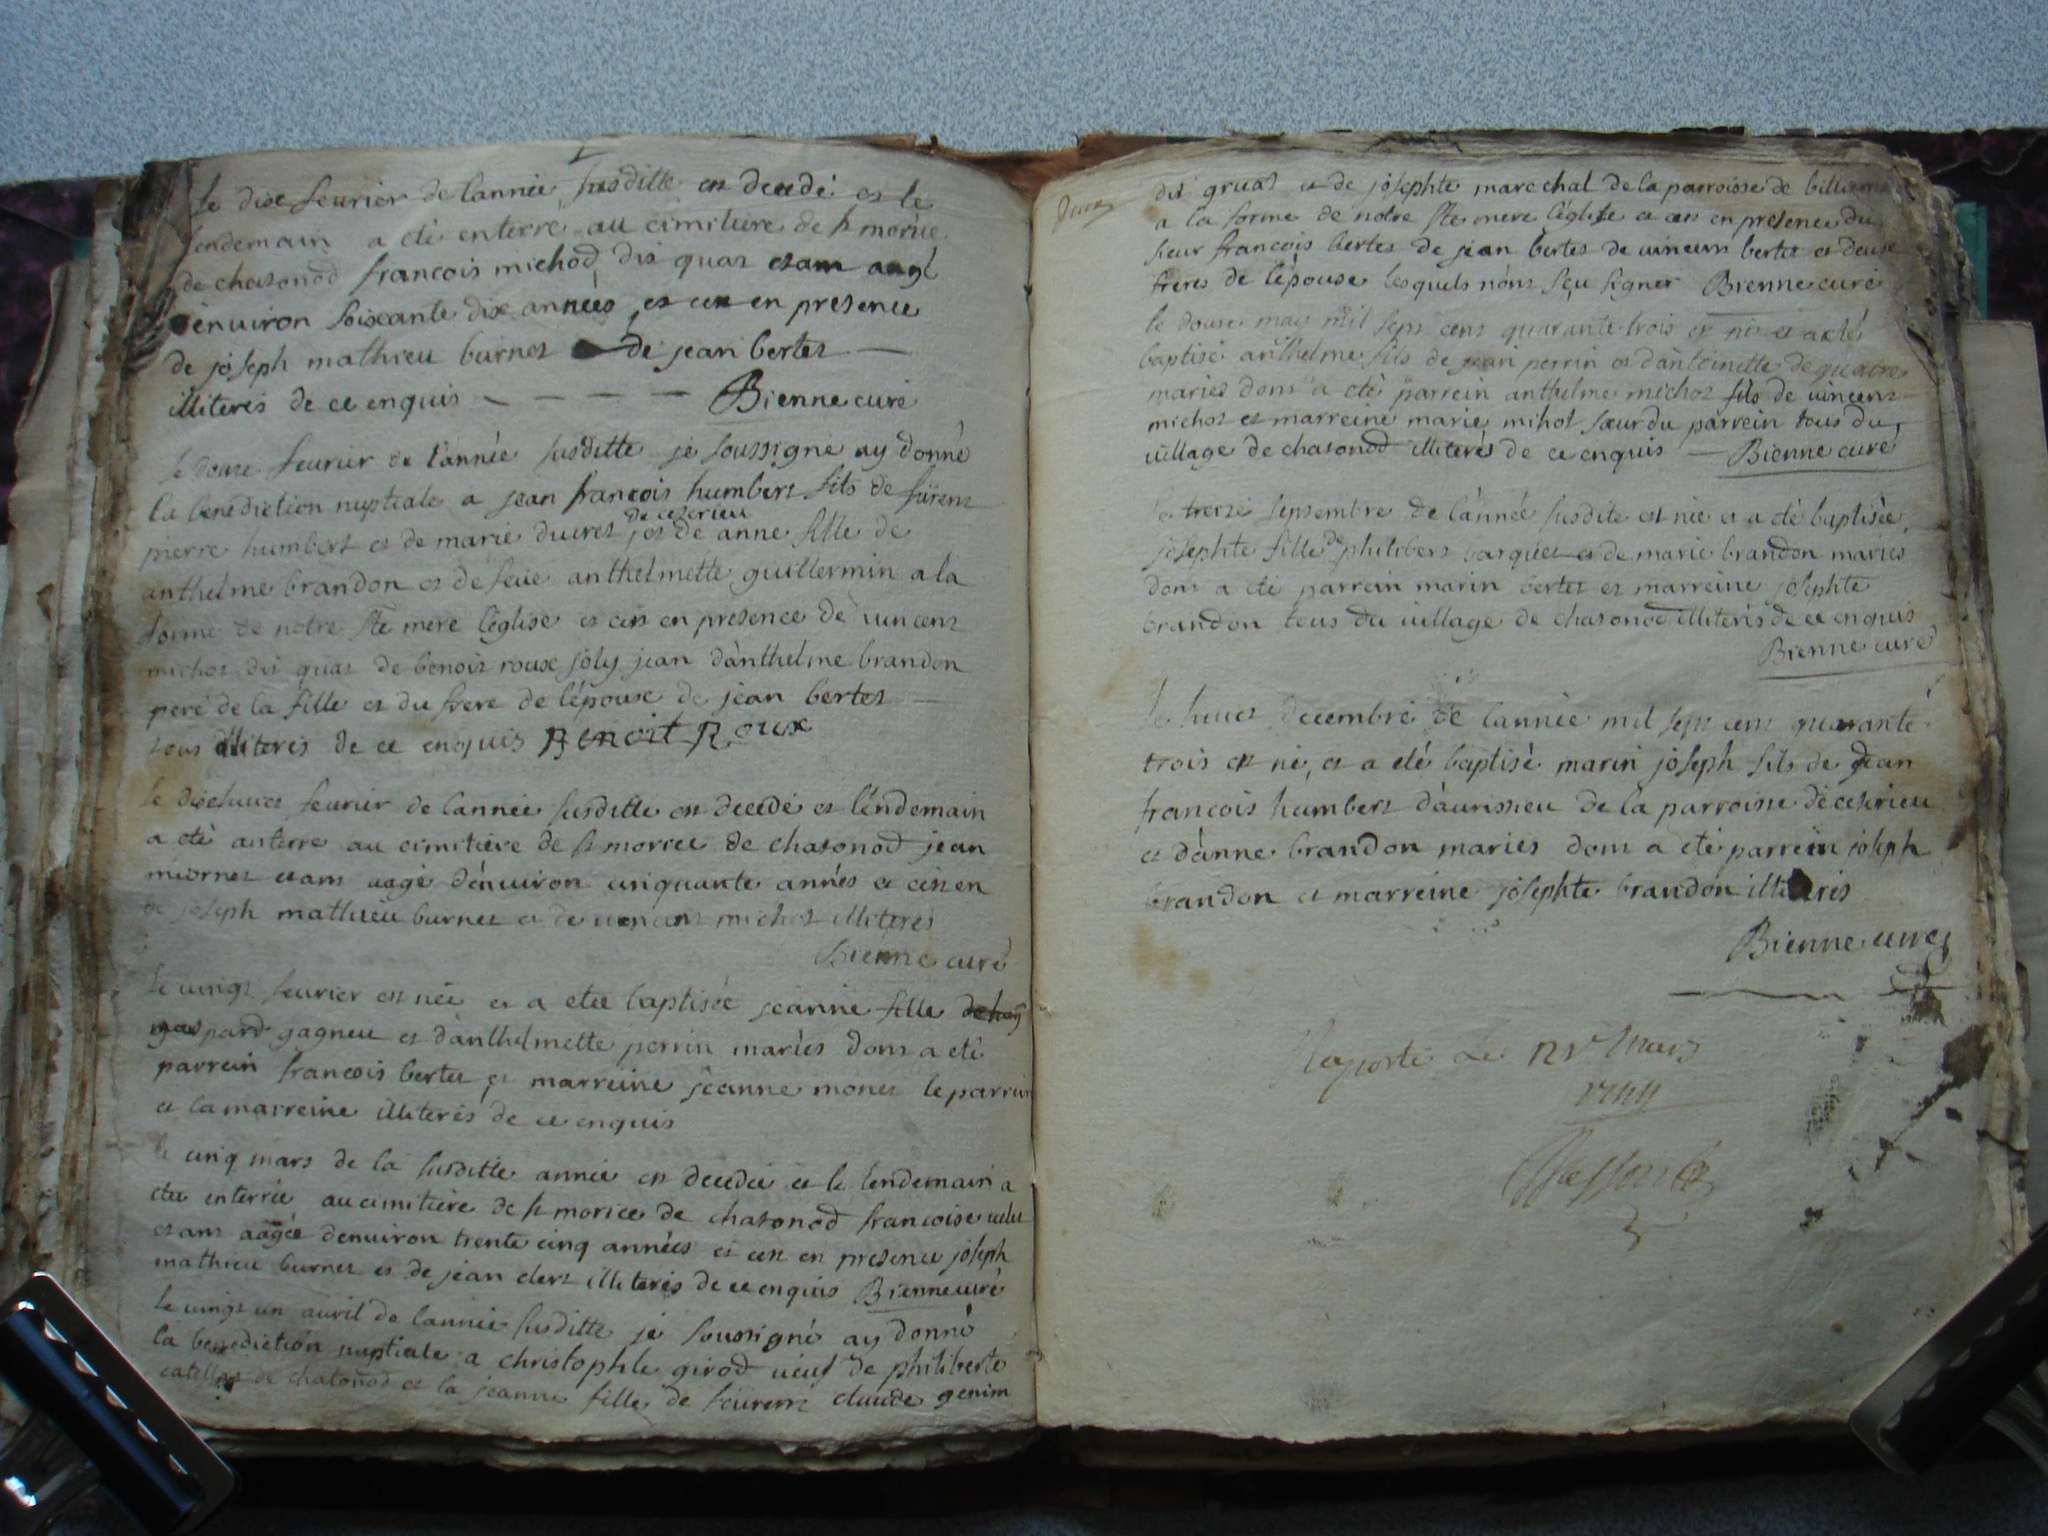 le dixe feurier de lannée susditte est decedé et le
lendemain a eté enterré au cimitiere de st morice
de chasonod francois michod dit quat etant aagé
denuiron soixante dix années et cest en presence
de joseph mathieu burnet de jean bertet
illiteres de ce enquis Bienne curé
le douze feurier de l'année susditte je soussigné ay donné
la benediction nuptiale a jean francois humbert fils de
pierre humbert et de marie ducret
de ceserieu
et de anne fille de
anthelme brandon et de feue anthelmette guillermin a la
forme de notre ste mere l'église et cest en presence de vincent
michot dit quat de benoit roux joly jean d'anthelme brandon
peré de la fille et du frere de l'épouse de jean bertet
tous illiteres de ce enquis Benoit Roux
le dixhuict feurier de lannée susditte est decedé et l'endemain
a eté anterré au cimitiere de st morice de chasonod jean
miornet etant aagé d'enuiron cinquante années et cest en
de joseph mathieu burnet et de vincent michot illiteres
Bienne curé
le vingt feurier est née et a etee baptisée jeanne fille
gaspard gagneu et d'anthelmette perrin mariés dont a eté
parrein francois bertet et marreine jeanne monet le parrein
et la marreine illiteres de ce enquis
le cinq mars de la susditte année est decedée et le lendemain a
etee enterrée au cimitiere de st morice de chasonod francoise
etant aagée denuiron trente cinq années et cest en presence joseph
mathieu burnet et de jean clert illiteres de ce enquis Bienne curé
le vingt un auril de lannée susditte je soussigné ay donné
la benediction nuptiale a christophle girod ueuf de philiberte
catellin de chasonod et la jeanne fille de claude genin
dit gruat et de josephte marechal de la parroisse de
a la forme de notre ste mere léglise et cest en presence du
sieur francois bertet de jean bertet de uincent bertet et deux
freres de lépouse lesquels nont seu signer Bienne curé
le douse may mil sept cent quarante trois est né et a eté
baptisé anthelme fils de jean perrin et dantoinette de quatre
mariés dont a eté parrein anthelme michot fils de vincent
michot et marreine marie mihot sœur du parrein tous du
village de chasonod illiterés de ce enquis Bienne curé
le treize septembre de lánnée susdite est née et a eté baptisée
josephte fille de philibert barquet et de marie brandon mariés
dont a eté parrein marin bertet et marreine josephte
brandon tous du uillage de chasonod illiterés de ce enquis
Bienne curé
le huict decembre de lannée mil sept cent quarante
trois est né et a eté baptisé marin joseph fils de jean
francois humbert d'aurissieu de la parroisse de ceserieu
et d'anne brandon mariés dont a eté parrein joseph
brandon et marreine josephte brandon illiterés
Bienne curé
Raporté le mars